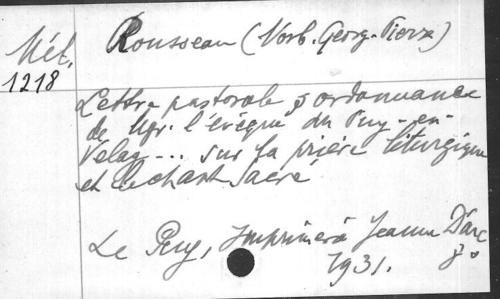 Mél. 1218
Rousseau (Norb. Georg. Pierre)
Lettre pastorale & ordonnance
de Mgr. l'évêque du Puy-en-
Velay... sur la prière liturgique
et le chant sacré
Le Puy, Imprimerie Jeanne D'arc
1931.